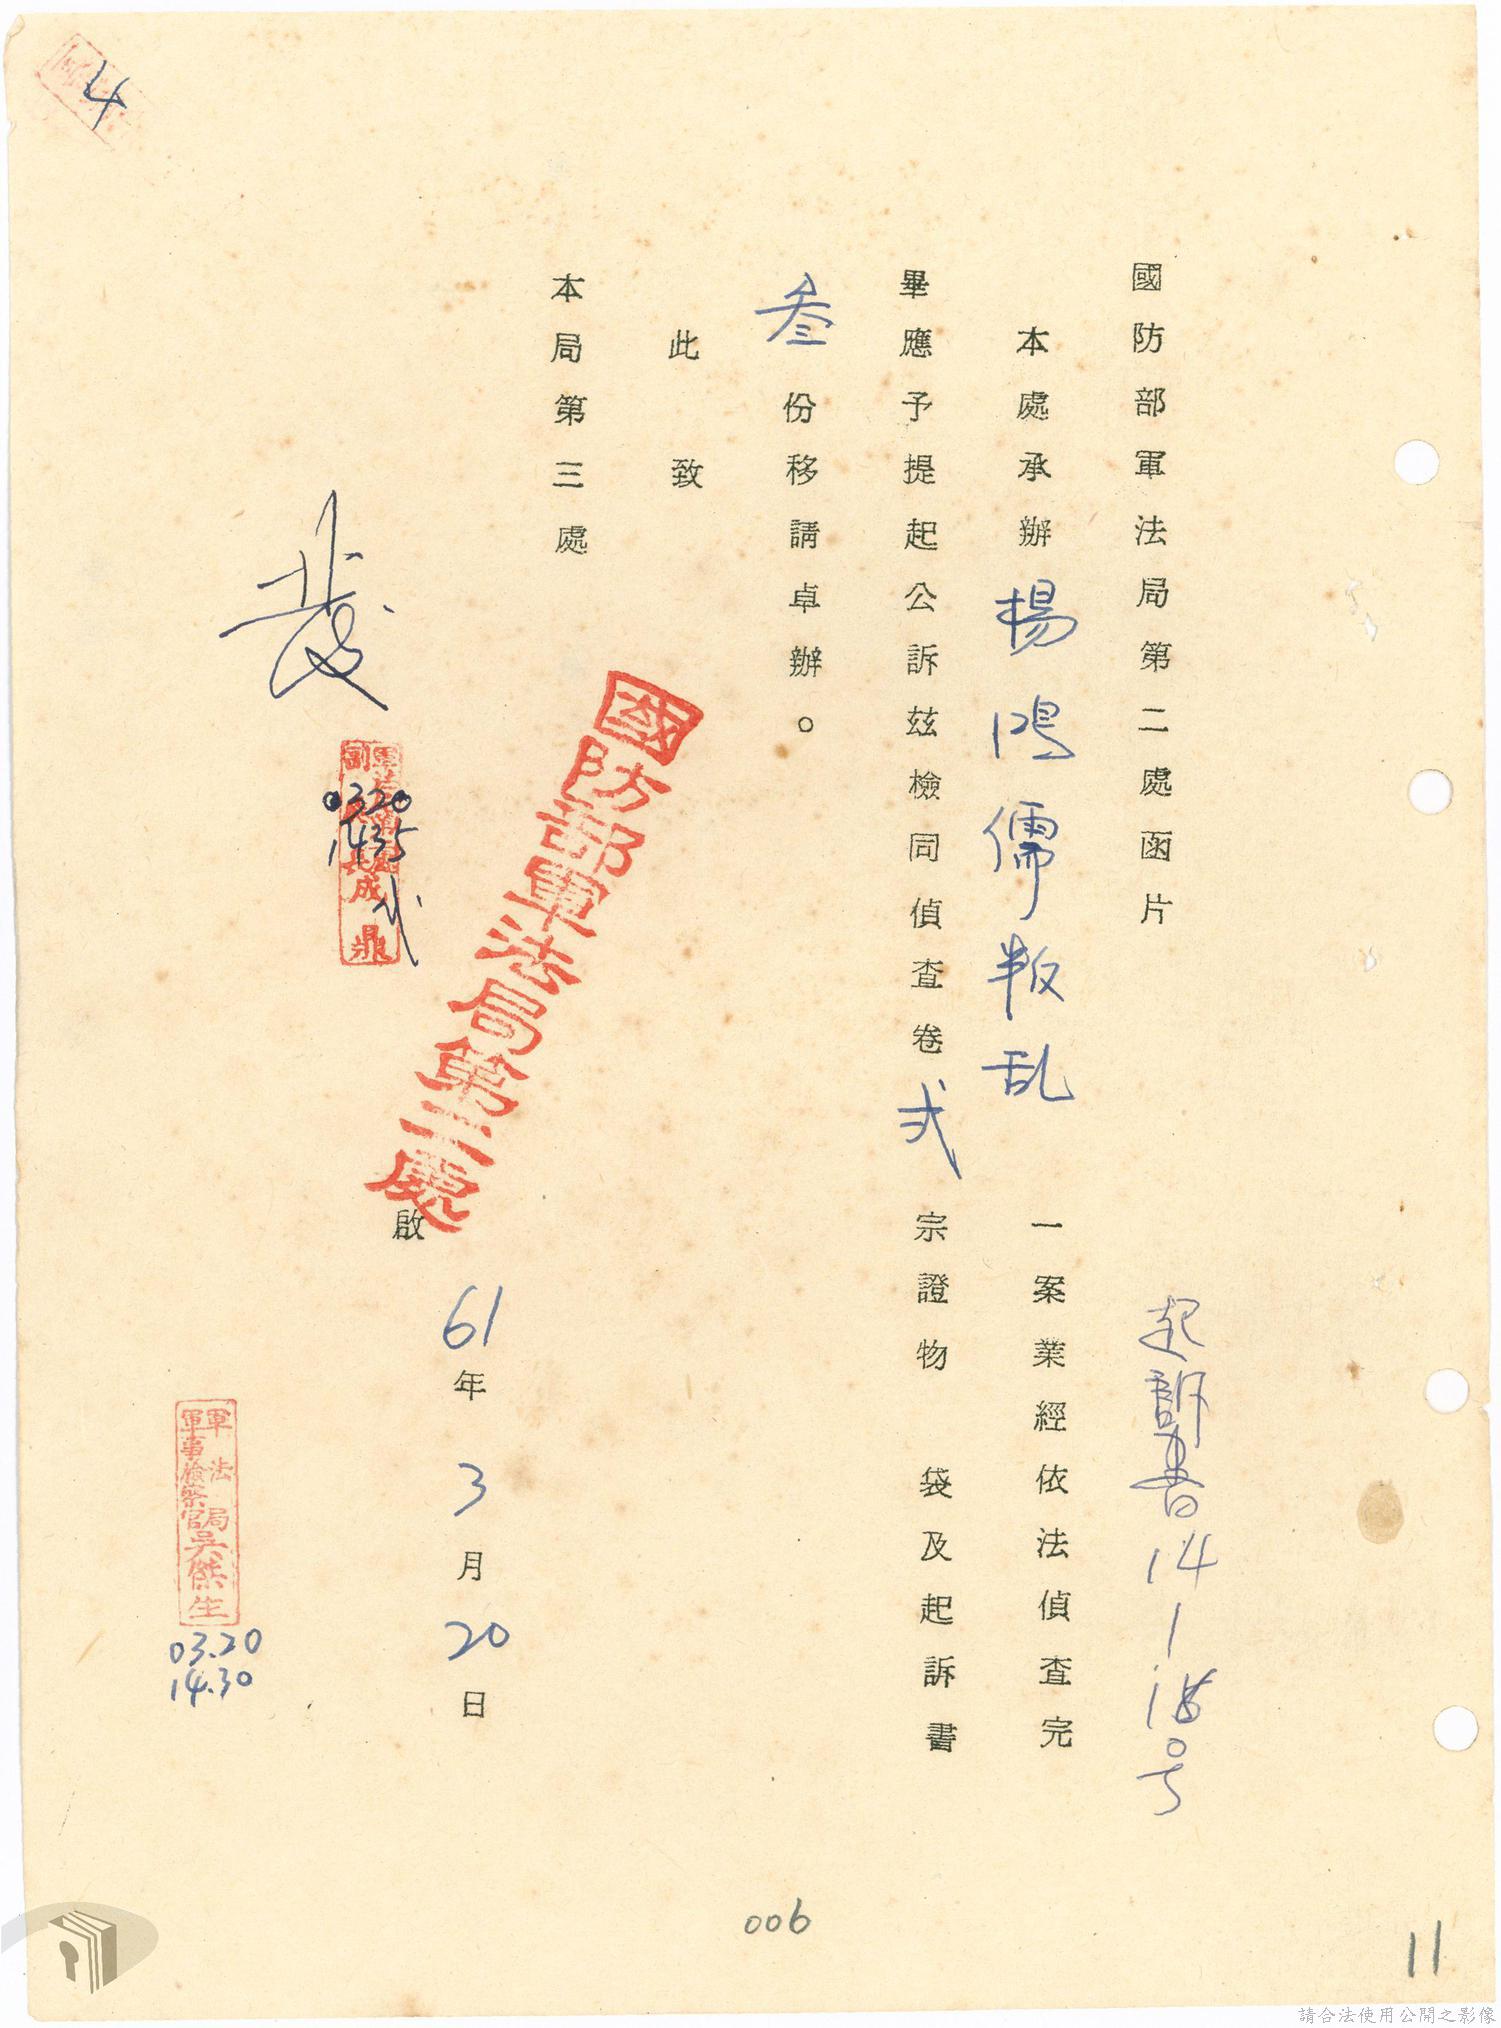 國防部軍法局第二處函片
起訴書14
本處承辦楊鴻儒叛乱一案業經依法偵查完
畢應予提起公訴茲檢同偵查卷弍宗證物 袋及起訴書
叁份移請卓辦。
此致
本局第三處
國防部軍法局第二處
啟
61年3月20日
0320
1435
成鼎
軍法局
軍事檢察官吳傑生
03.20
14.30
4
006
11
請合法使用公開之影像